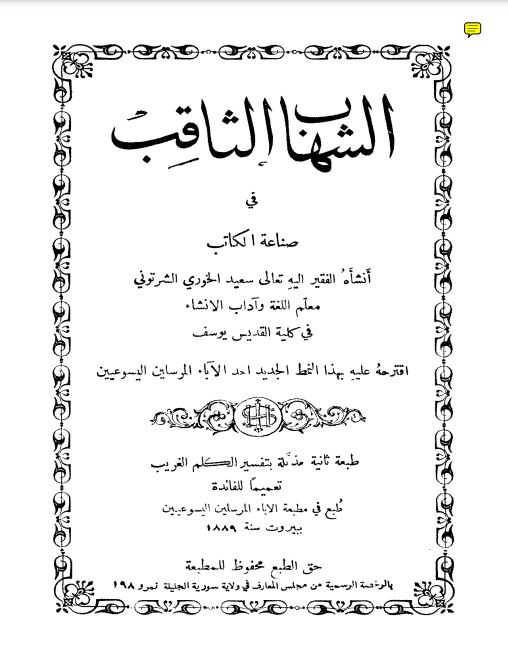 الشهاب الثاقب
في
صناعة الكاتب
أنشأهُ الفقير اليهِ تعالى سعيد الخوري الشرتوني
معلّم اللغة وآداب الانشاء
في كلية القديس يوسف
اقترحهُ عليهِ بهذا النمط الجديد احد الآباء المرسلين اليسوعيين
طبعة ثانية مذيّلة بتفسير الكلم الغريب
تعميمًا للفائدة
طُبع في مطبعة الاباء المرسلين اليسوعيين
ببيروت سنة ١٨٨٩
حق الطبع محفوظ للمطبعة
بالرخصة الرسمية من مجلس المعارف في ولاية سورية الجليلة نمرو ١٩٨